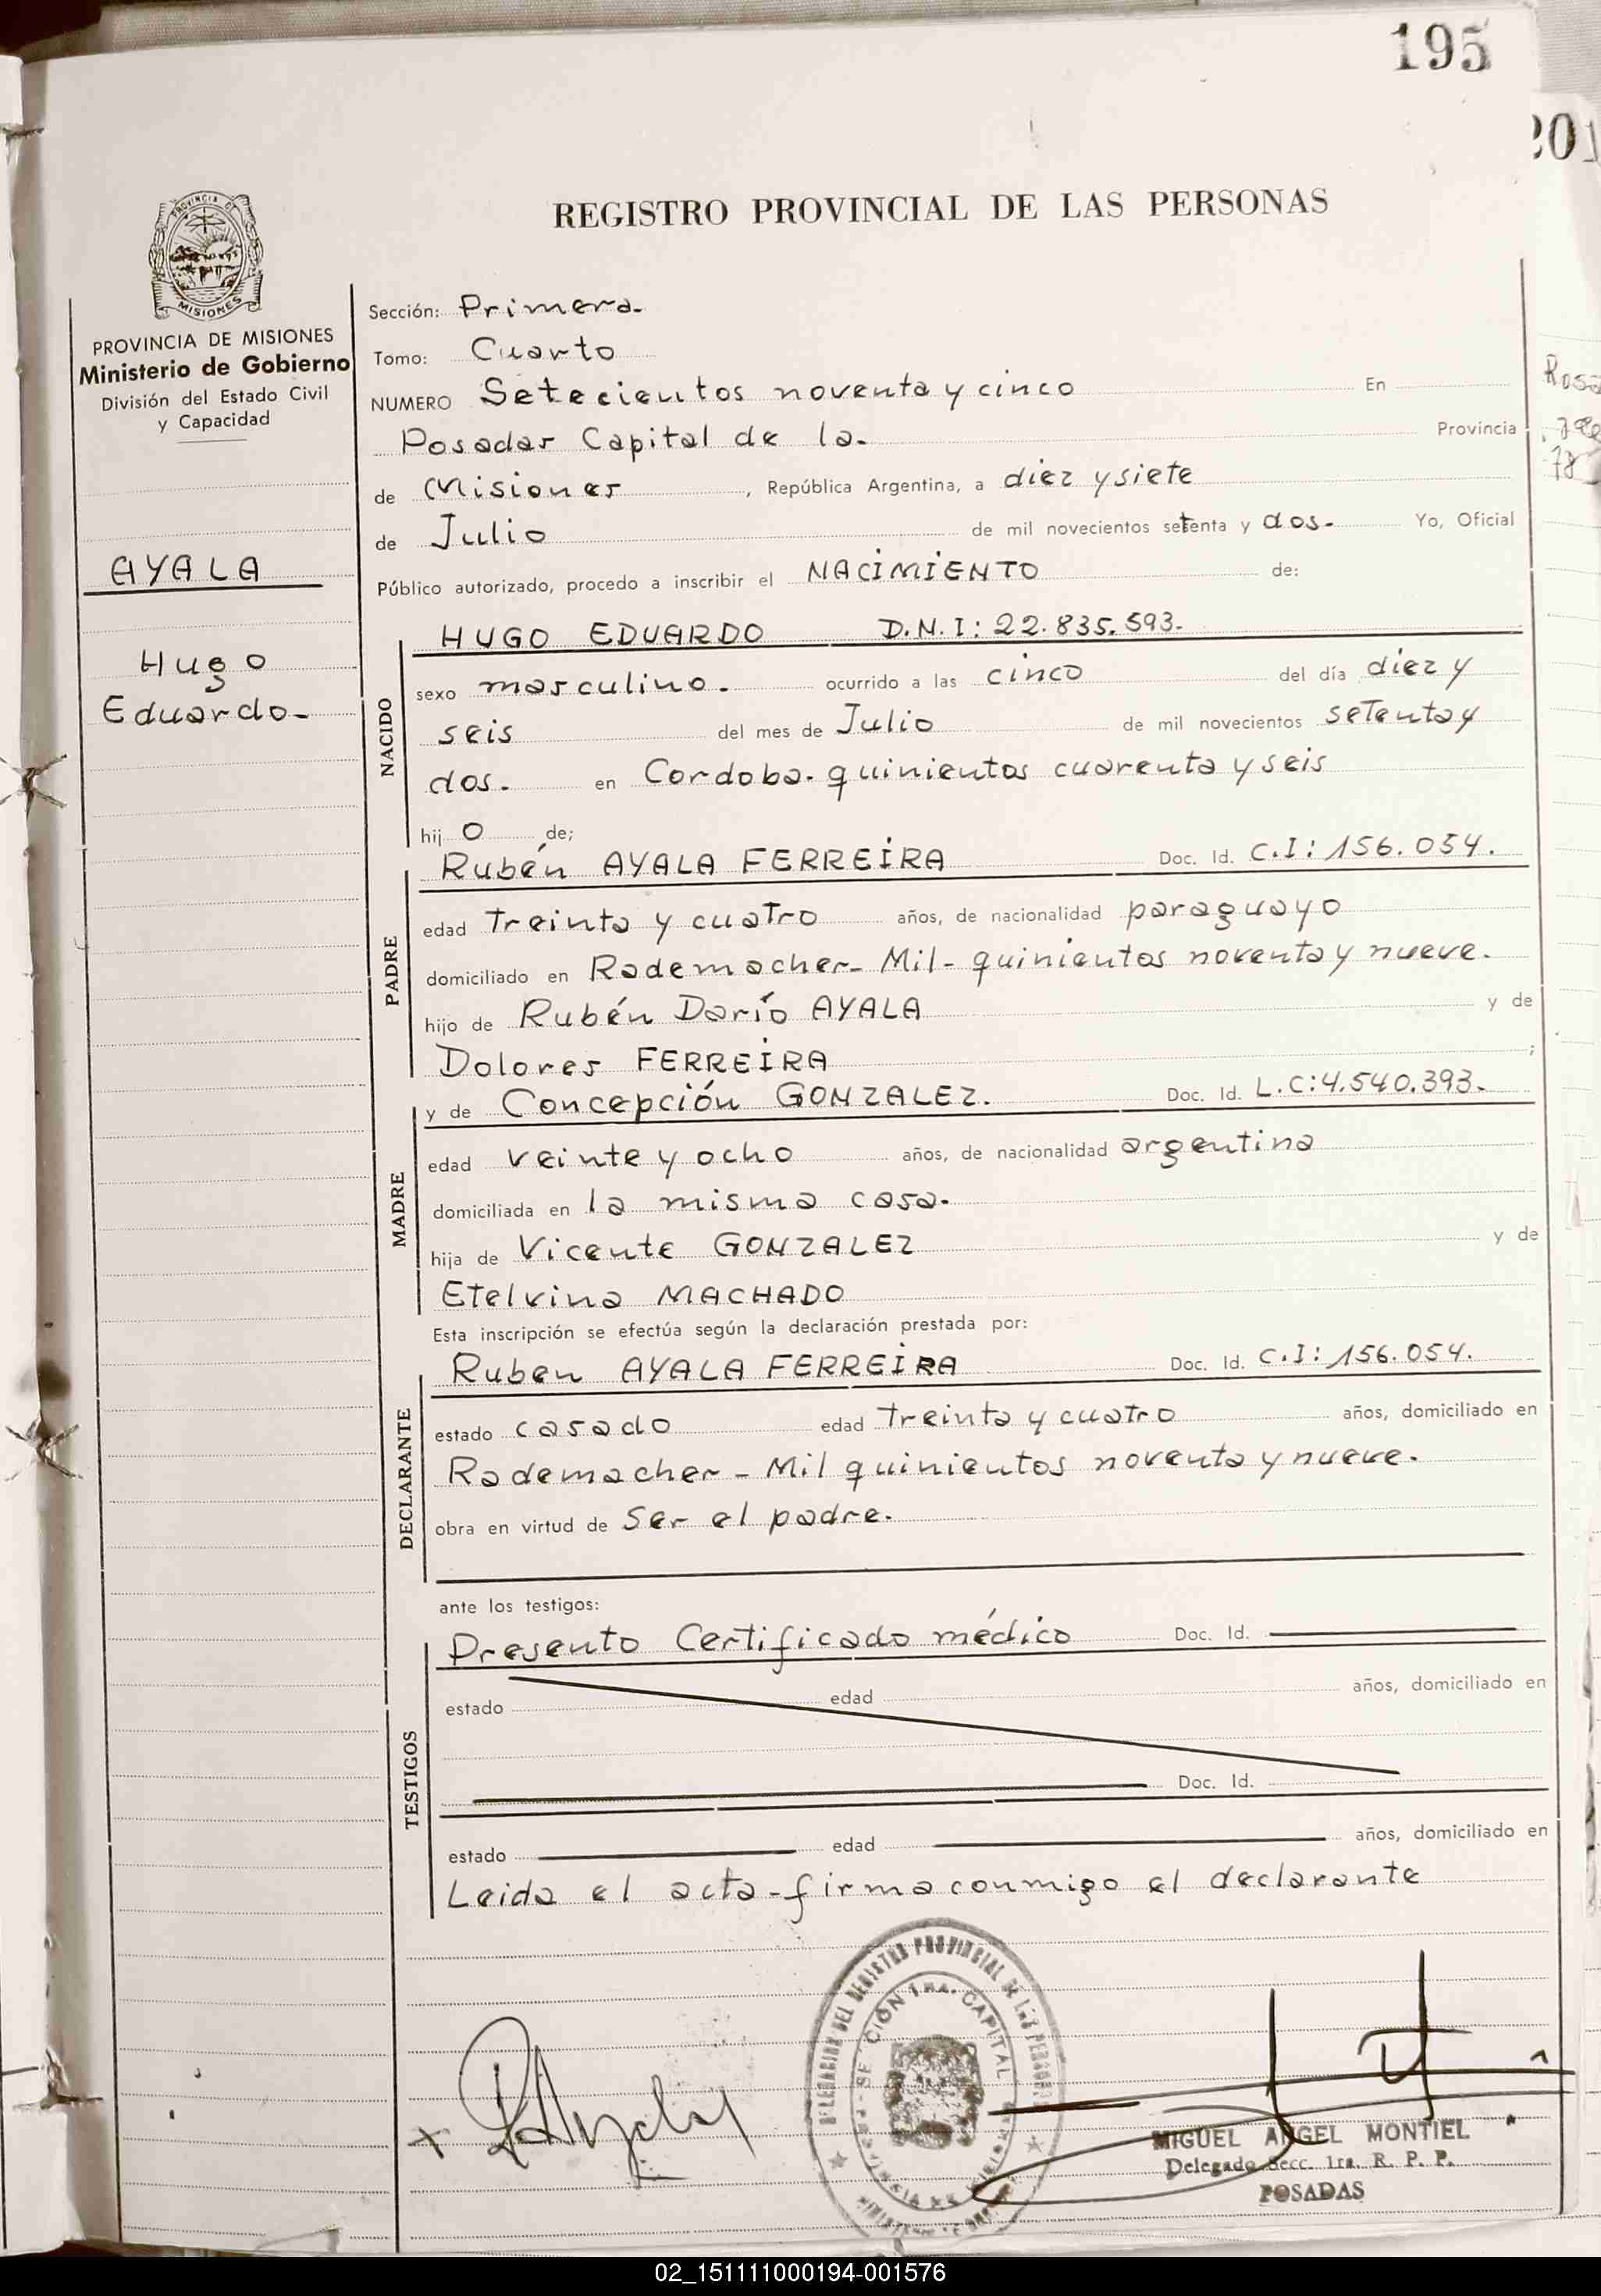 195
201
REGISTRO PROVINCIAL DE LAS PERSONAS
PROVINCIA DE
MISIONES
PROVINCIA DE MISIONES
Ministerio de Gobierno
División del Estado Civil
y Capacidad
AYALA
Hugo
Eduardo-
Sección: Primera.
Tomo: Cuarto
NUMERO Setecientos noventa y cinco En
Posadas Capital de la. Provincia
de Misiones, República Argentina, a diez y siete
de Julio de mil novecientos setenta y dos. Yo, Oficial
Público autorizado, procedo a inscribir el NACIMIENTO de:
NACIDO
HUGO EDUARDO D.N.I: 22.835.593.
sexo masculino. ocurrido a las cinco del día diez y
seis del mes de Julio de mil novecientos setenta y
dos. en Cordoba. quinientos cuarenta y seis
hij o de;
PADRE
Rubén AYALA FERREIRA Doc. Id. C.I: 156.054.
edad treinta y cuatro años, de nacionalidad paraguayo
domiciliado en Rademacher- Mil- quinientos noventa y nueve.
hijo de Rubén Darío AYALA y de
Dolores FERREIRA ;
MADRE
y de Concepción GONZALEZ. Doc. Id. L.C: 4.540.393.
edad veinte y ocho años, de nacionalidad argentina
domiciliada en la misma casa.
hija de Vicente GONZALEZ y de
Etelvina MACHADO
Esta inscripción se efectúa según la declaración prestada por:
DECLARANTE
Ruben AYALA FERREIRA Doc. Id. C.I: 156.054.
estado casado edad treinta y cuatro años, domiciliado en
Rademacher - Mil quinientos noventa y nueve.
obra en virtud de Ser el padre.
ante los testigos:
TESTIGOS
Presento Certificado médico Doc. Id.
estado edad años, domiciliado en
Doc. Id.
estado edad años, domiciliado en
Leida el acta-firma conmigo el declarante
DEL REGISTRO PROVINCIAL DE LAS PERSONAS
SECCIÓN 1RA. CAPITAL
MIGUEL ANGEL MONTIEL
Delegado Secc. 1ra. R. P. P.
POSADAS
02_151111000194-001576